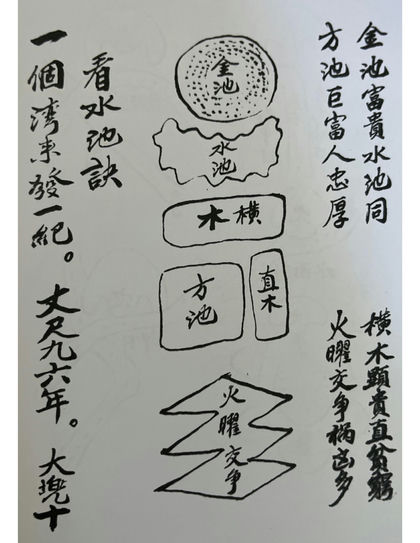 金池富貴水池同
方池巨富人忠厚
橫木顕貴直貧窮
火曜交争禍凶多
金池
水池
橫木
直木
方池
火曜交争
看水池訣
一個湾来發一紀。丈尺九六年。大兜十